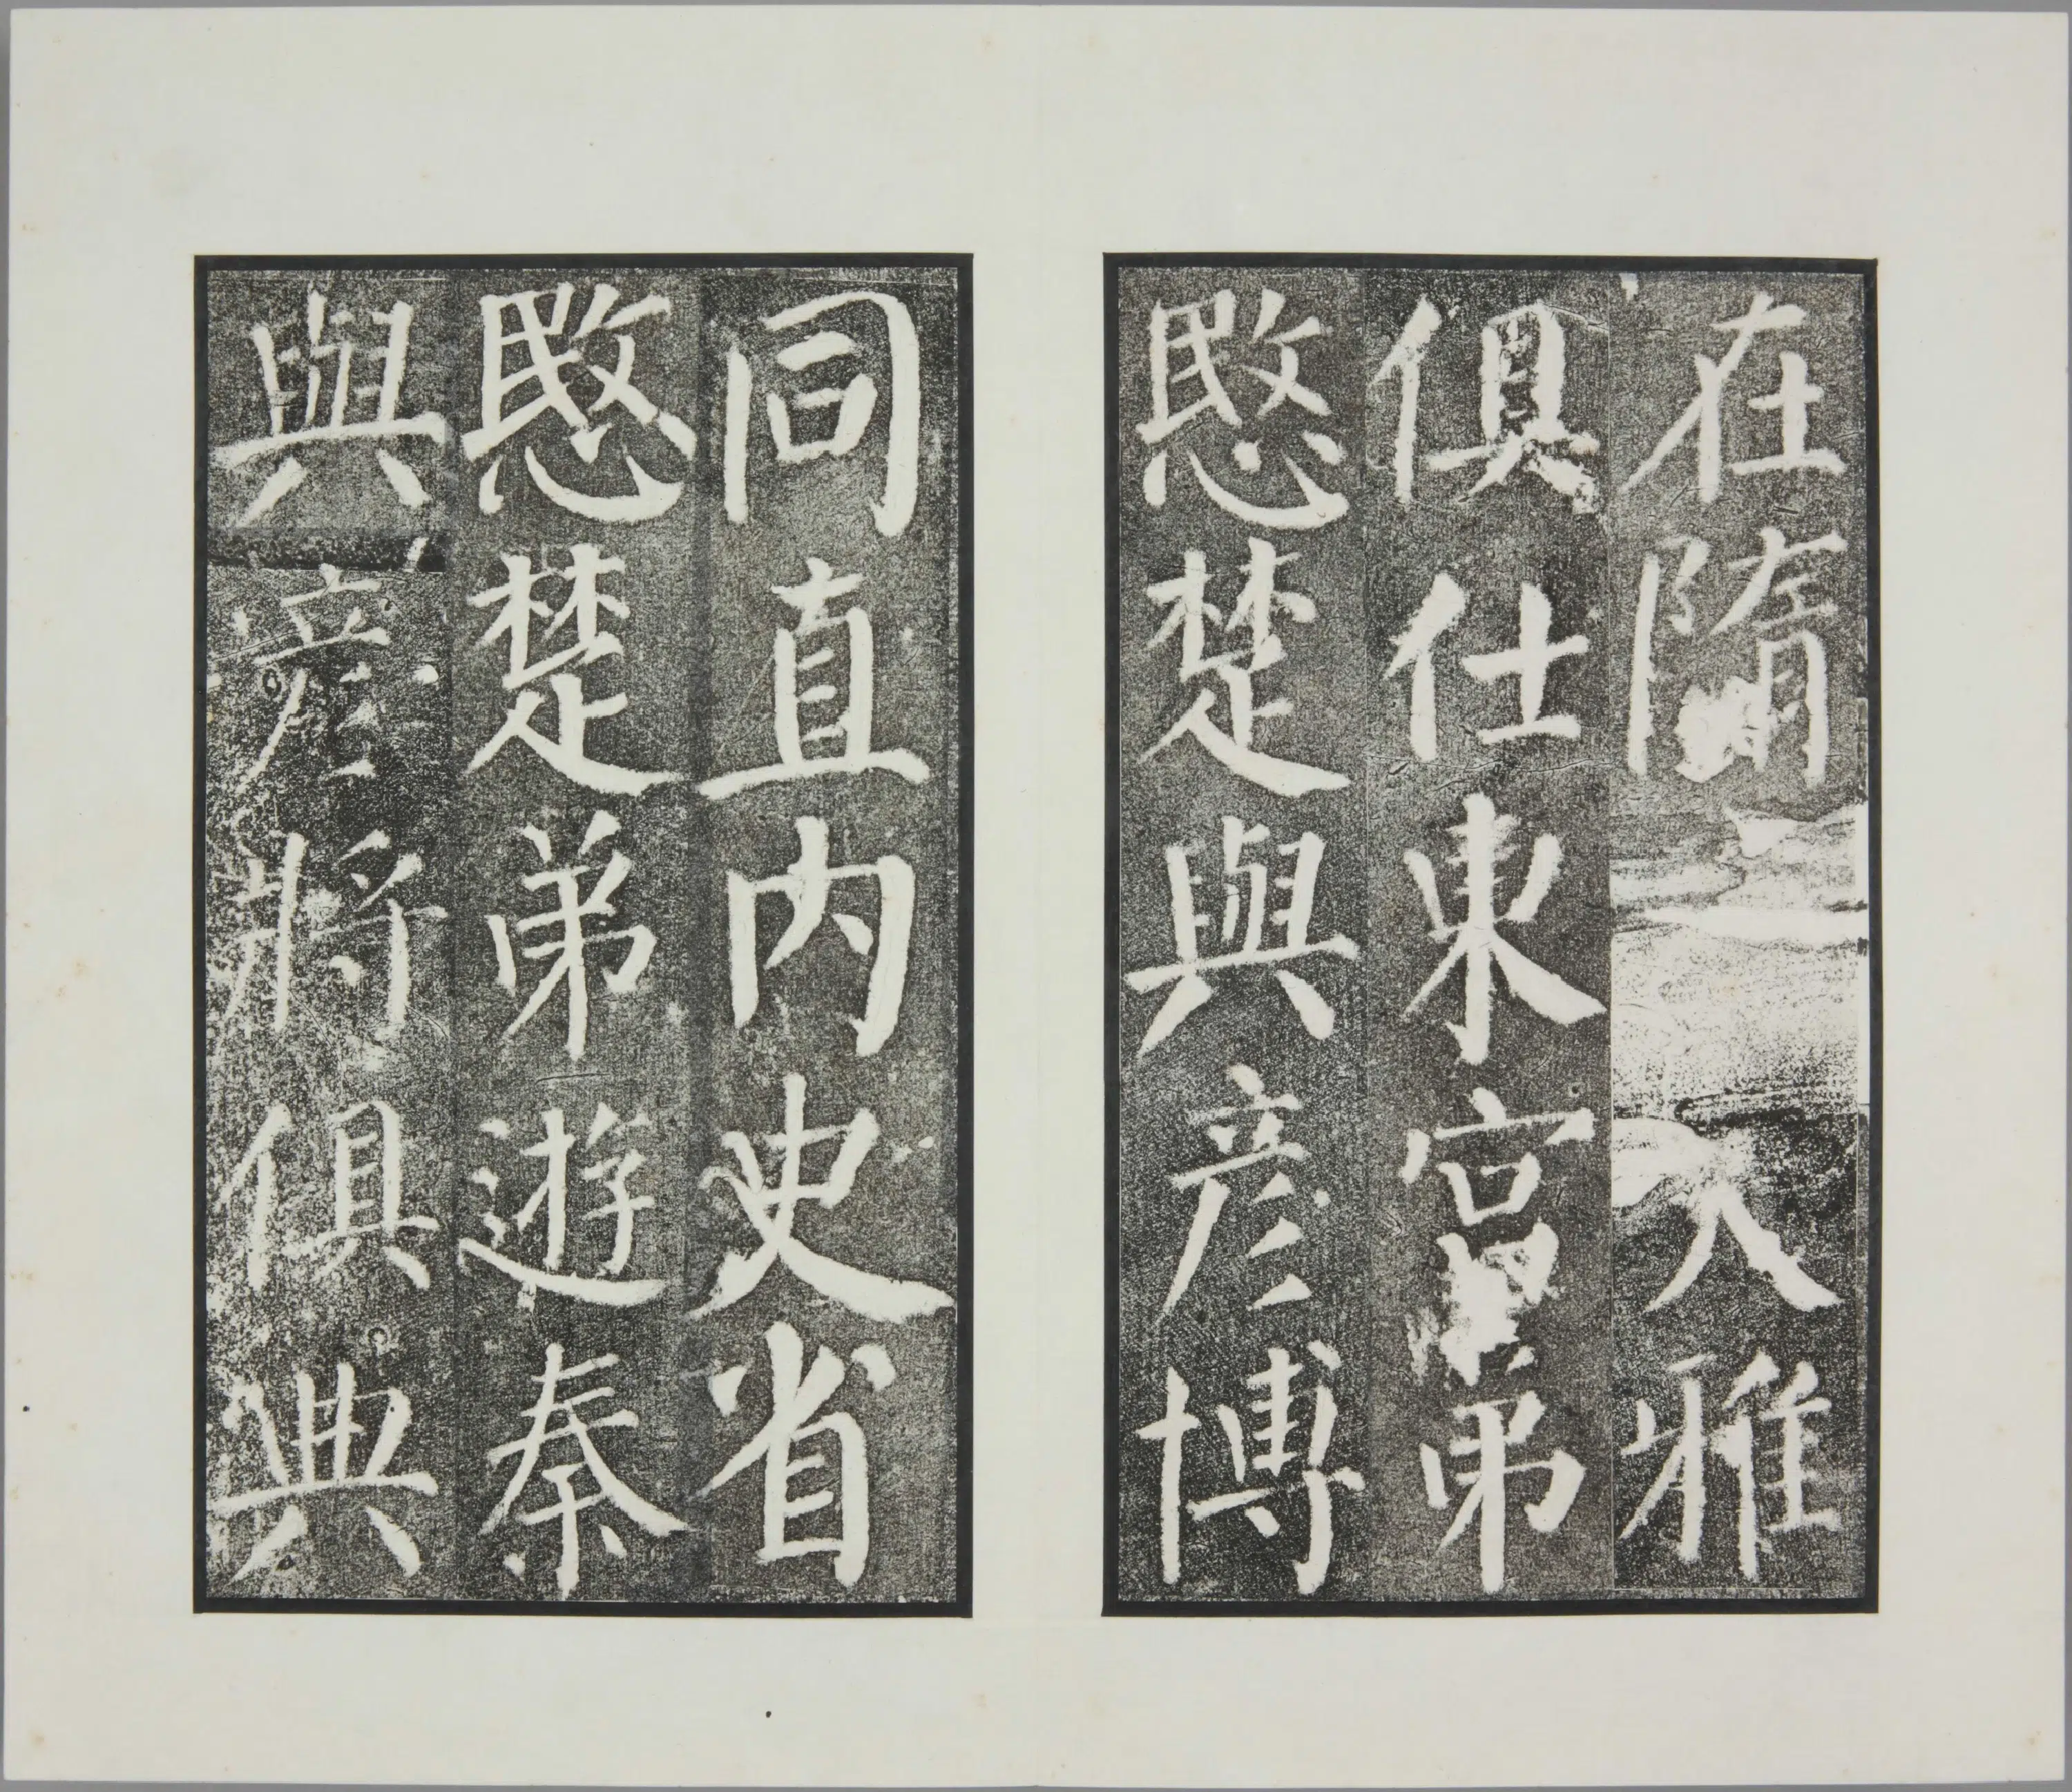 在隋大雅
俱仕東宮弟
愍楚與彦博
同直内史省
愍楚弟遊秦
與彦將俱典